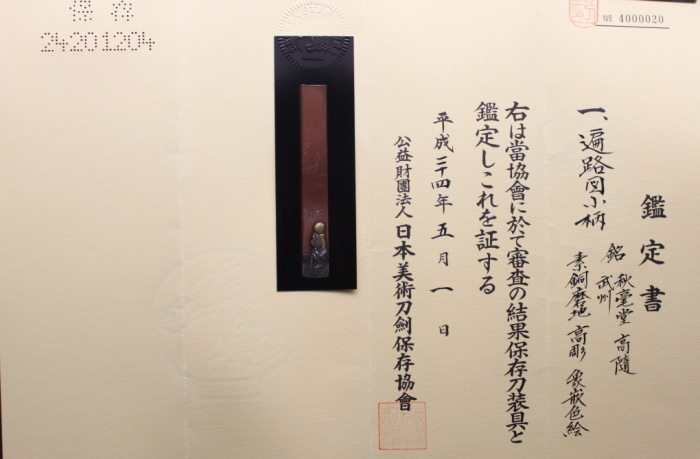 鑑定書
一、遍路図小柄
銘 秋毫堂 高随
武州
素銅磨地 高彫 象嵌色絵
右は當協會に於て審査の結果保存刀装具と
鑑定しこれを証する
平成二十四年五月一日
公益財團法人 日本美術刀劍保存協會
№ 4000020
保存
24201204